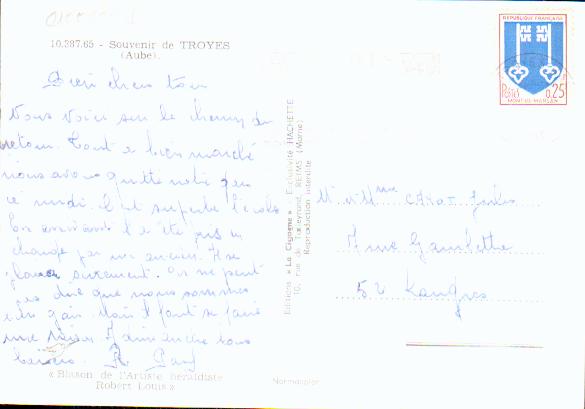 10.387.65 - Souvenir de TROYES
(Aube).
Bien chers tous
Nous voici sur le chemin du
retour. Tout a bien marché
nous avons quitté notre
ce midi. Il est superbe l'école
En arrivant il a été pris en
charge par un ancien. Il se
surement. On ne peut
pas dire que nous sommes
gais mais il faut se faire
une raison.
baisers. R
« Blason de l'Artiste héraldiste
Robert Louis »
Editions « La Cigogne » - Exclusivité HACHETTE
10, rue de Talleyrand, REIMS (Marne)
Reproduction interdite
REPUBLIQUE FRANÇAISE
POSTES 0,25F
MONT-DE-MARSAN
M et Mme Jules
Rue Gambetta
52 Langres